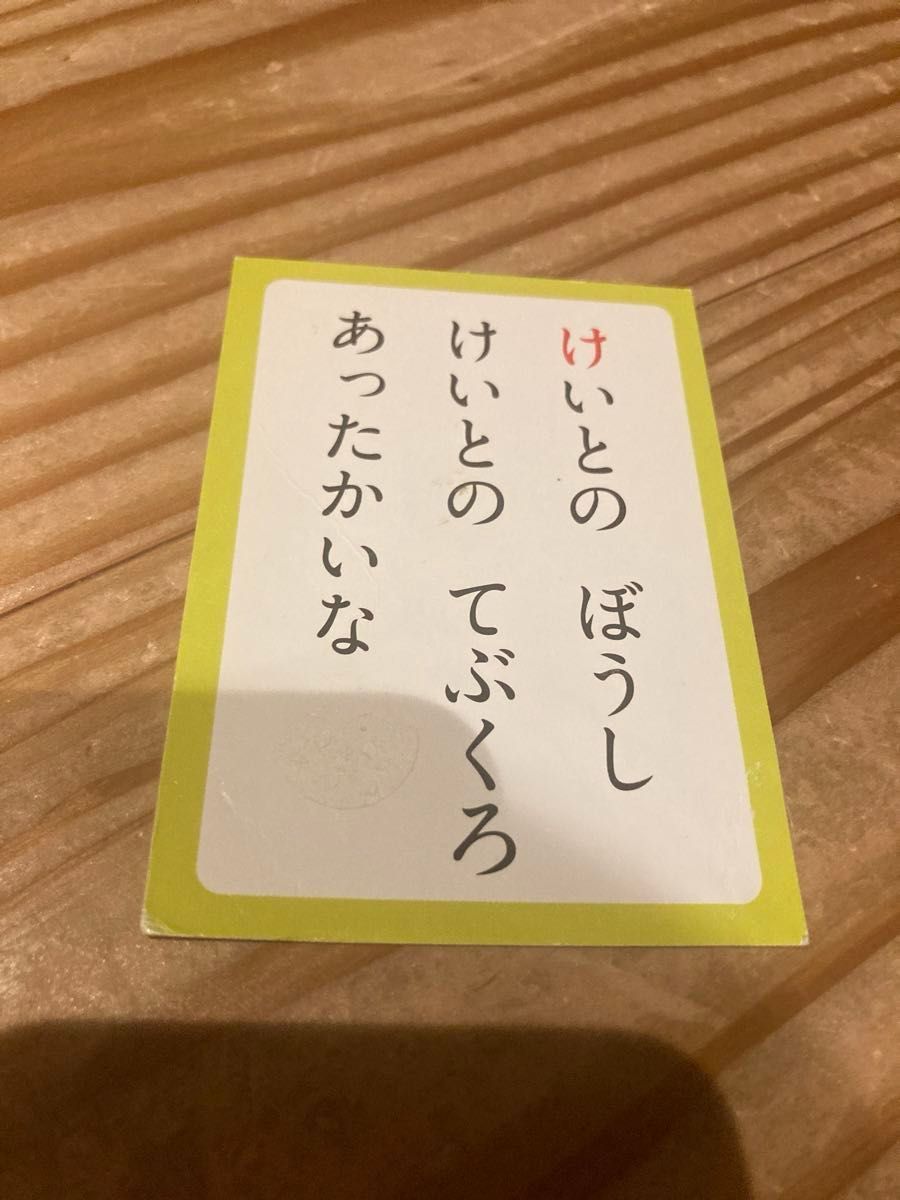 けいとの　ぼうし
けいとの　てぶくろ
あったかいな